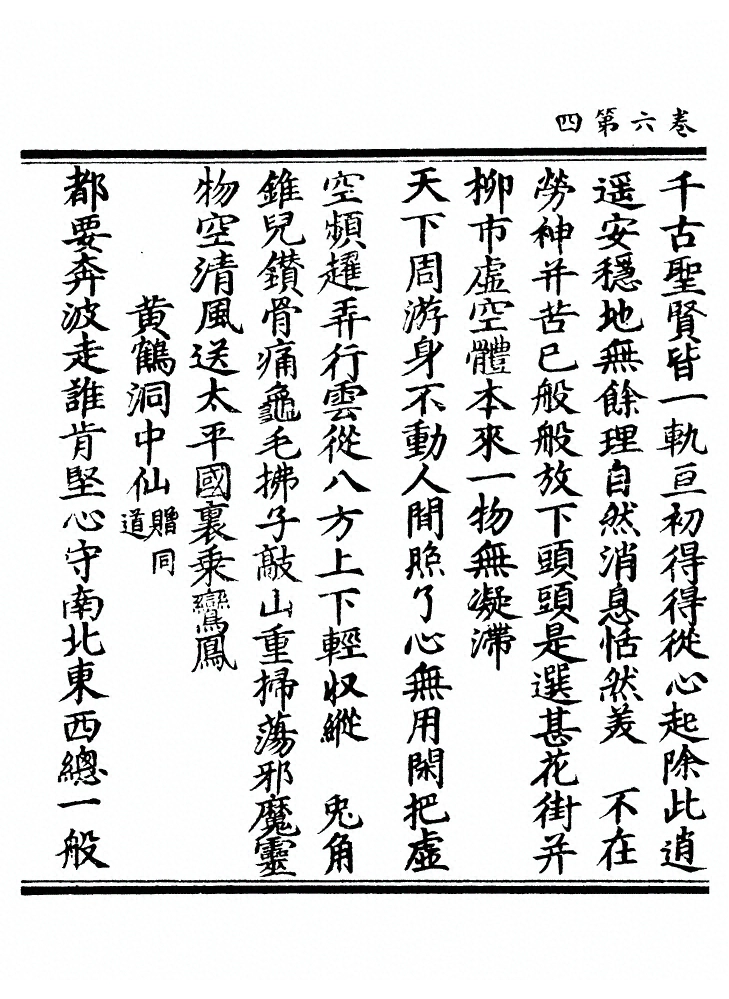 卷六第四
千古聖賢皆一軌亘初得得從心起除此逍
遥安穩地無餘理自然消息恬然美　不在
勞神并苦己般般放下頭頭是選甚花街并
柳市虛空體本來一物無凝滯
天下周游身不動人間照了心無用閑把虛
空頻趯弄行雲從八方上下輕收縱　兎角
錐兒鑽骨痛龜毛拂子敲山重掃蕩邪魔靈
物空清風送太平國裏乘鸞鳳
黃鶴洞中仙贈同道
都要奔波走誰肯堅心守南北東西總一般